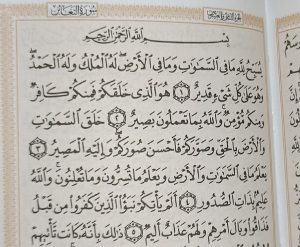 سُورَةُ التَّغَابُنِ
بِسْمِ اللَّهِ الرَّحْمَٰنِ الرَّحِيمِ
يُسَبِّحُ لِلَّهِ مَا فِي السَّمَاوَاتِ وَمَا فِي الْأَرْضِ لَهُ الْمُلْكُ وَلَهُ الْحَمْدُ
وَهُوَ عَلَىٰ كُلِّ شَيْءٍ قَدِيرٌ ١ هُوَ الَّذِي خَلَقَكُمْ فَمِنكُمْ كَافِرٌ
وَمِنكُم مُّؤْمِنٌ وَاللَّهُ بِمَا تَعْمَلُونَ بَصِيرٌ ٢ خَلَقَ السَّمَاوَاتِ
وَالْأَرْضَ بِالْحَقِّ وَصَوَّرَكُمْ فَأَحْسَنَ صُوَرَكُمْ وَإِلَيْهِ الْمَصِيرُ ٣
يَعْلَمُ مَا فِي السَّمَاوَاتِ وَالْأَرْضِ وَيَعْلَمُ مَا تُسِرُّونَ وَمَا تُعْلِنُونَ وَاللَّهُ
عَلِيمٌ بِذَاتِ الصُّدُورِ ٤ أَلَمْ يَأْتِكُمْ نَبَأُ الَّذِينَ كَفَرُوا مِن قَبْلُ
فَذَاقُوا وَبَالَ أَمْرِهِمْ وَلَهُمْ عَذَابٌ أَلِيمٌ ٥ ذَٰلِكَ بِأَنَّهُ كَانَت تَّأْتِيهِمْ